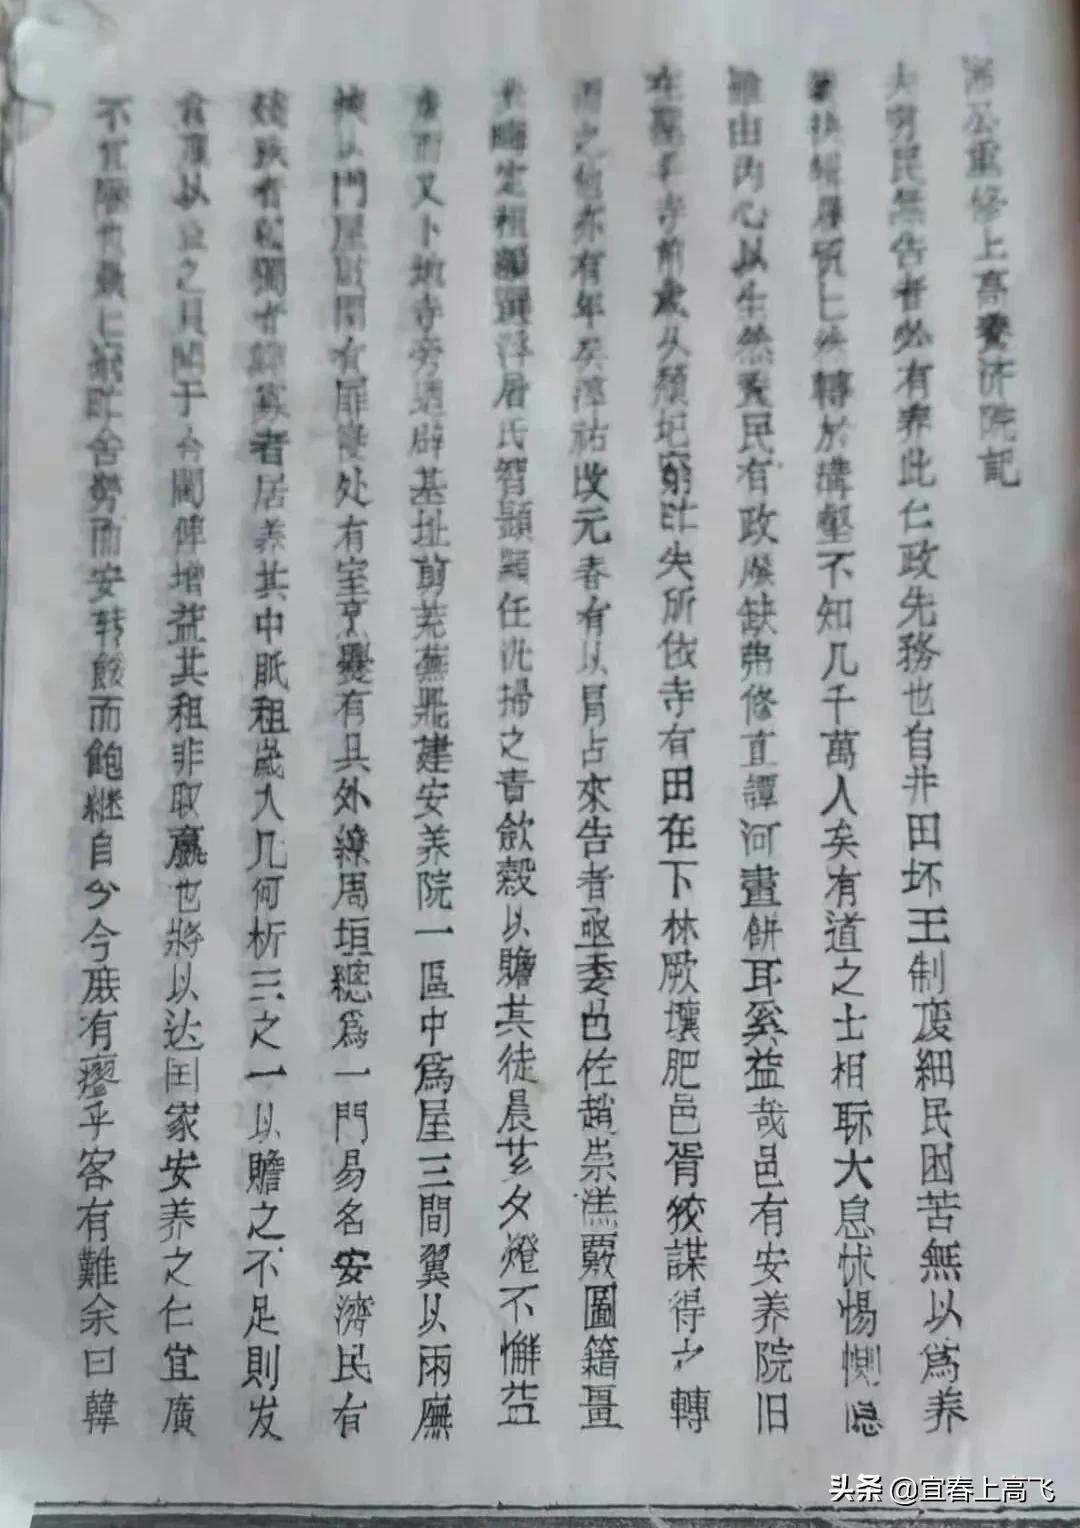 公重修上高養济院記
夫窮民無告者必有养此仁政先務也自井田坏王制废細民困苦無以為养
轉於溝壑不知几千萬人矣有道之士相聚大息怵惕惻隐
雖由内心以生然養民有政廢缺弗修直譚河畫餅耳奚益哉邑有安养院旧
在聖寺前歲久頹圮窮民失所依寺有田在下林厥壤肥邑胥狡謀得之轉
而之他亦有年矣淳祐改元春有以冒占來告者亟委邑佐趙崇漾覈圖籍畺
畝定租額選浮屠氏智顗顓任汎掃之責斂穀以贍其徒晨芗夕燈不懈益
虔而又卜地寺旁辟基址剪荒蕪鼎建安养院一區中為屋三間翼以兩廡
以門屋間有扉寝处有室烹爨有具外繚周垣總為一門易名安濟民有
殘疾有惸獨者鰥寡者居养其中眡租歲入几何析三之一以贍之不足則发
以之于令闢俾增益其租非取贏也將以达囯家安养之仁宜廣
不宜隘也舍勞而安转餒而飽継自今厥有瘳乎客有難余曰韓
头条 @宜春上高飞